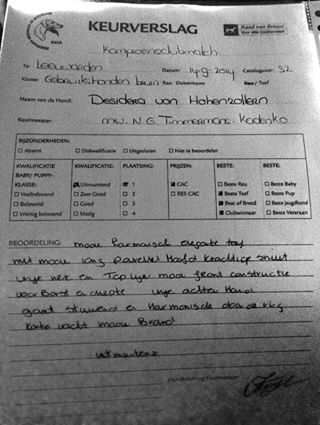 KEURVERSLAG
Raad van Beheer
Kampioenschclubmatch
Te: Leeuwarden Datum: 14-9-2014 Catalogusnr. 32
Klasse: Gebruikshonden bruin Ras: Dobermann Reu / Teef
Naam van de Hond: Desidera von Hohenzollern
Keurmeester: mw. N.G. Timmermans-Kadenko
BIJZONDERHEDEN:
Absent Diskwalificatie Uitgesloten Niet te beoordelen
KWALIFICATIE BABY/ PUPPY-KLASSE: KWALIFICATIE: PLAATSING: PRIJZEN: BESTE: BESTE:
Veelbelovend Uitmuntend 1 CAC Beste Reu Beste Baby
Belovend Zeer Goed 2 RES CAC Beste Teef Beste Pup
Weinig belovend Goed 3 Best of Breed Beste Jeugdhond
Matig 4 Clubwinnaar Beste Veteraan
BEOORDELING: mooi harmonisch elegante teef
met mooi lang parallel Hoofd krachtige snuit
nek en Toplijn mooi front constructie
voor Borst en diepte achter Hand
gaat stuwend en Harmonisch door de ring
korte vacht mooi Brand
uitmuntend
Handtekening Keurmeester: